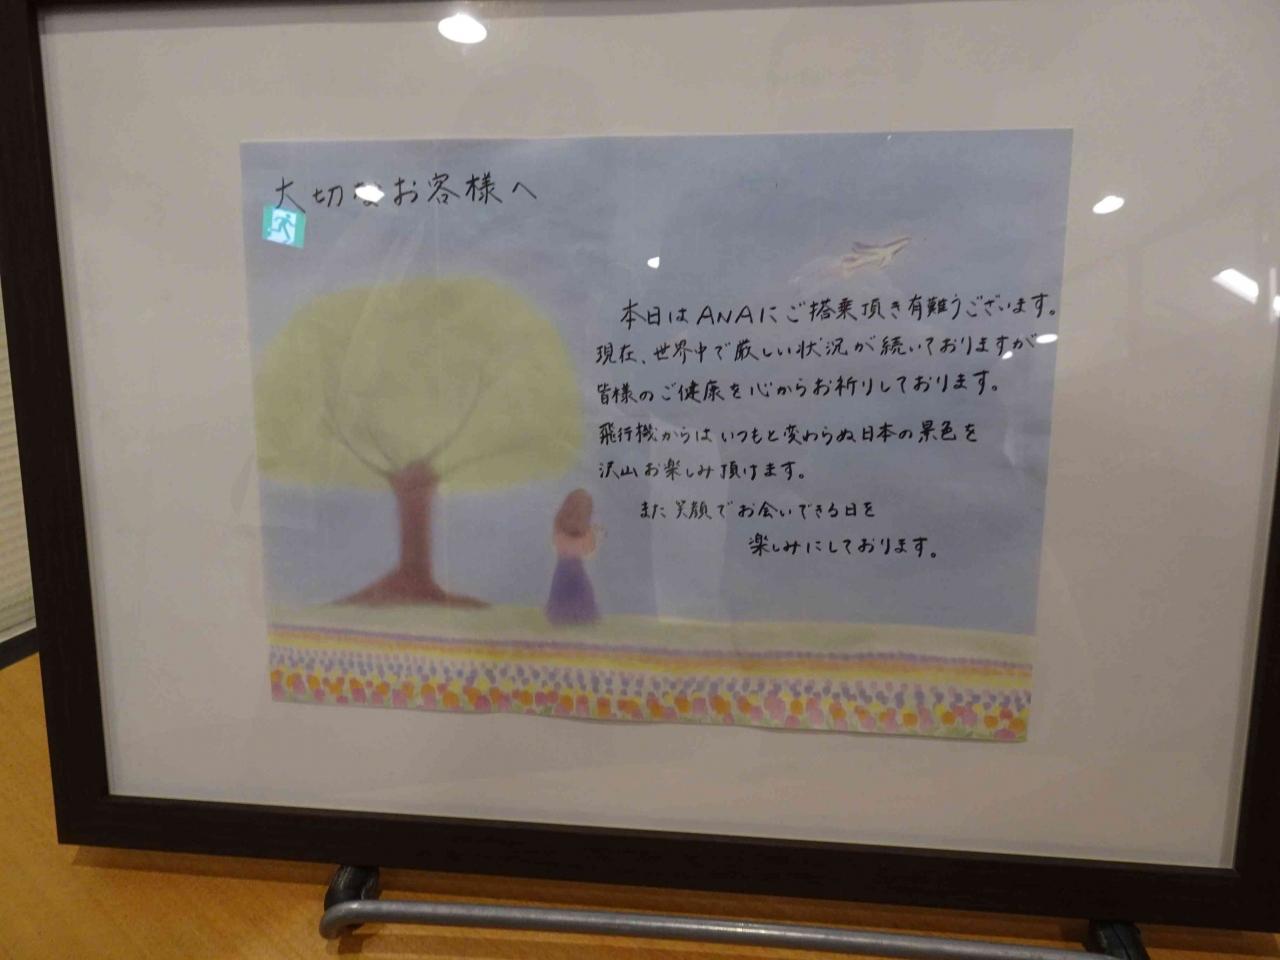 大切なお客様へ
本日はANAにご搭乗頂き有難うございます。
現在、世界中で厳しい状況が続いておりますが
皆様のご健康を心からお祈りしております。
飛行機からはいつもと変わらぬ日本の景色を
沢山お楽しみ頂けます。
また笑顔でお会いできる日を
楽しみにしております。